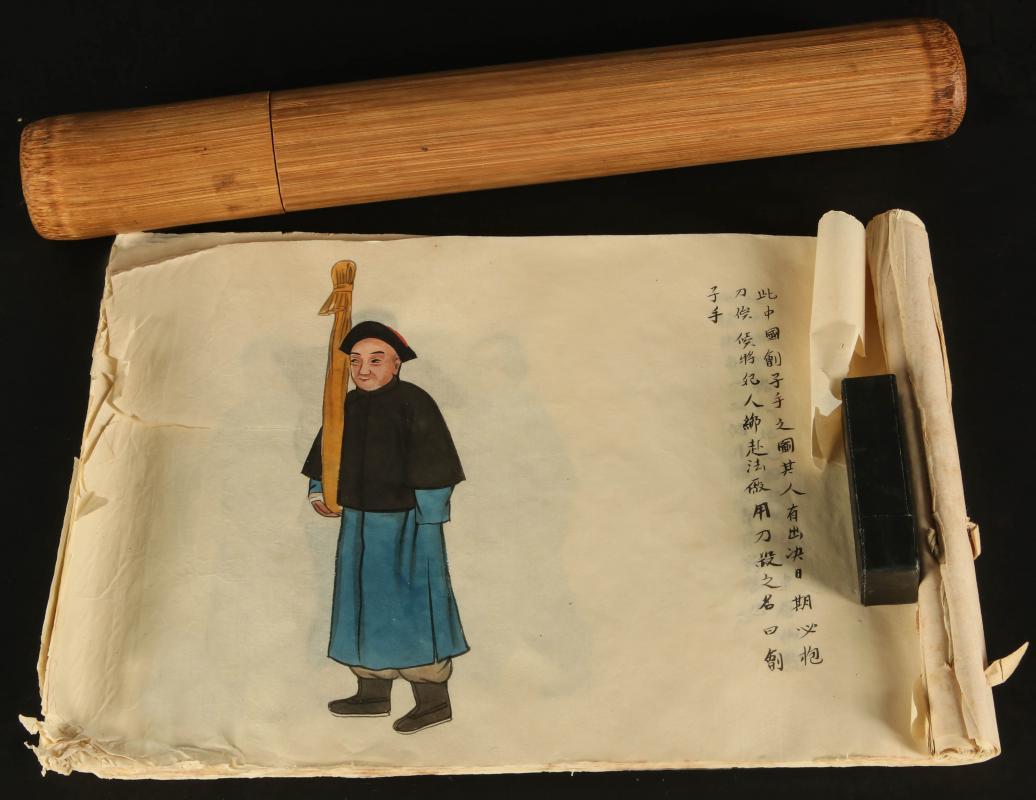 此中國劊子手之圖其人有出决日期必抱
刀俟候將犯人綁赴法廠用刀殺之名曰劊
子手